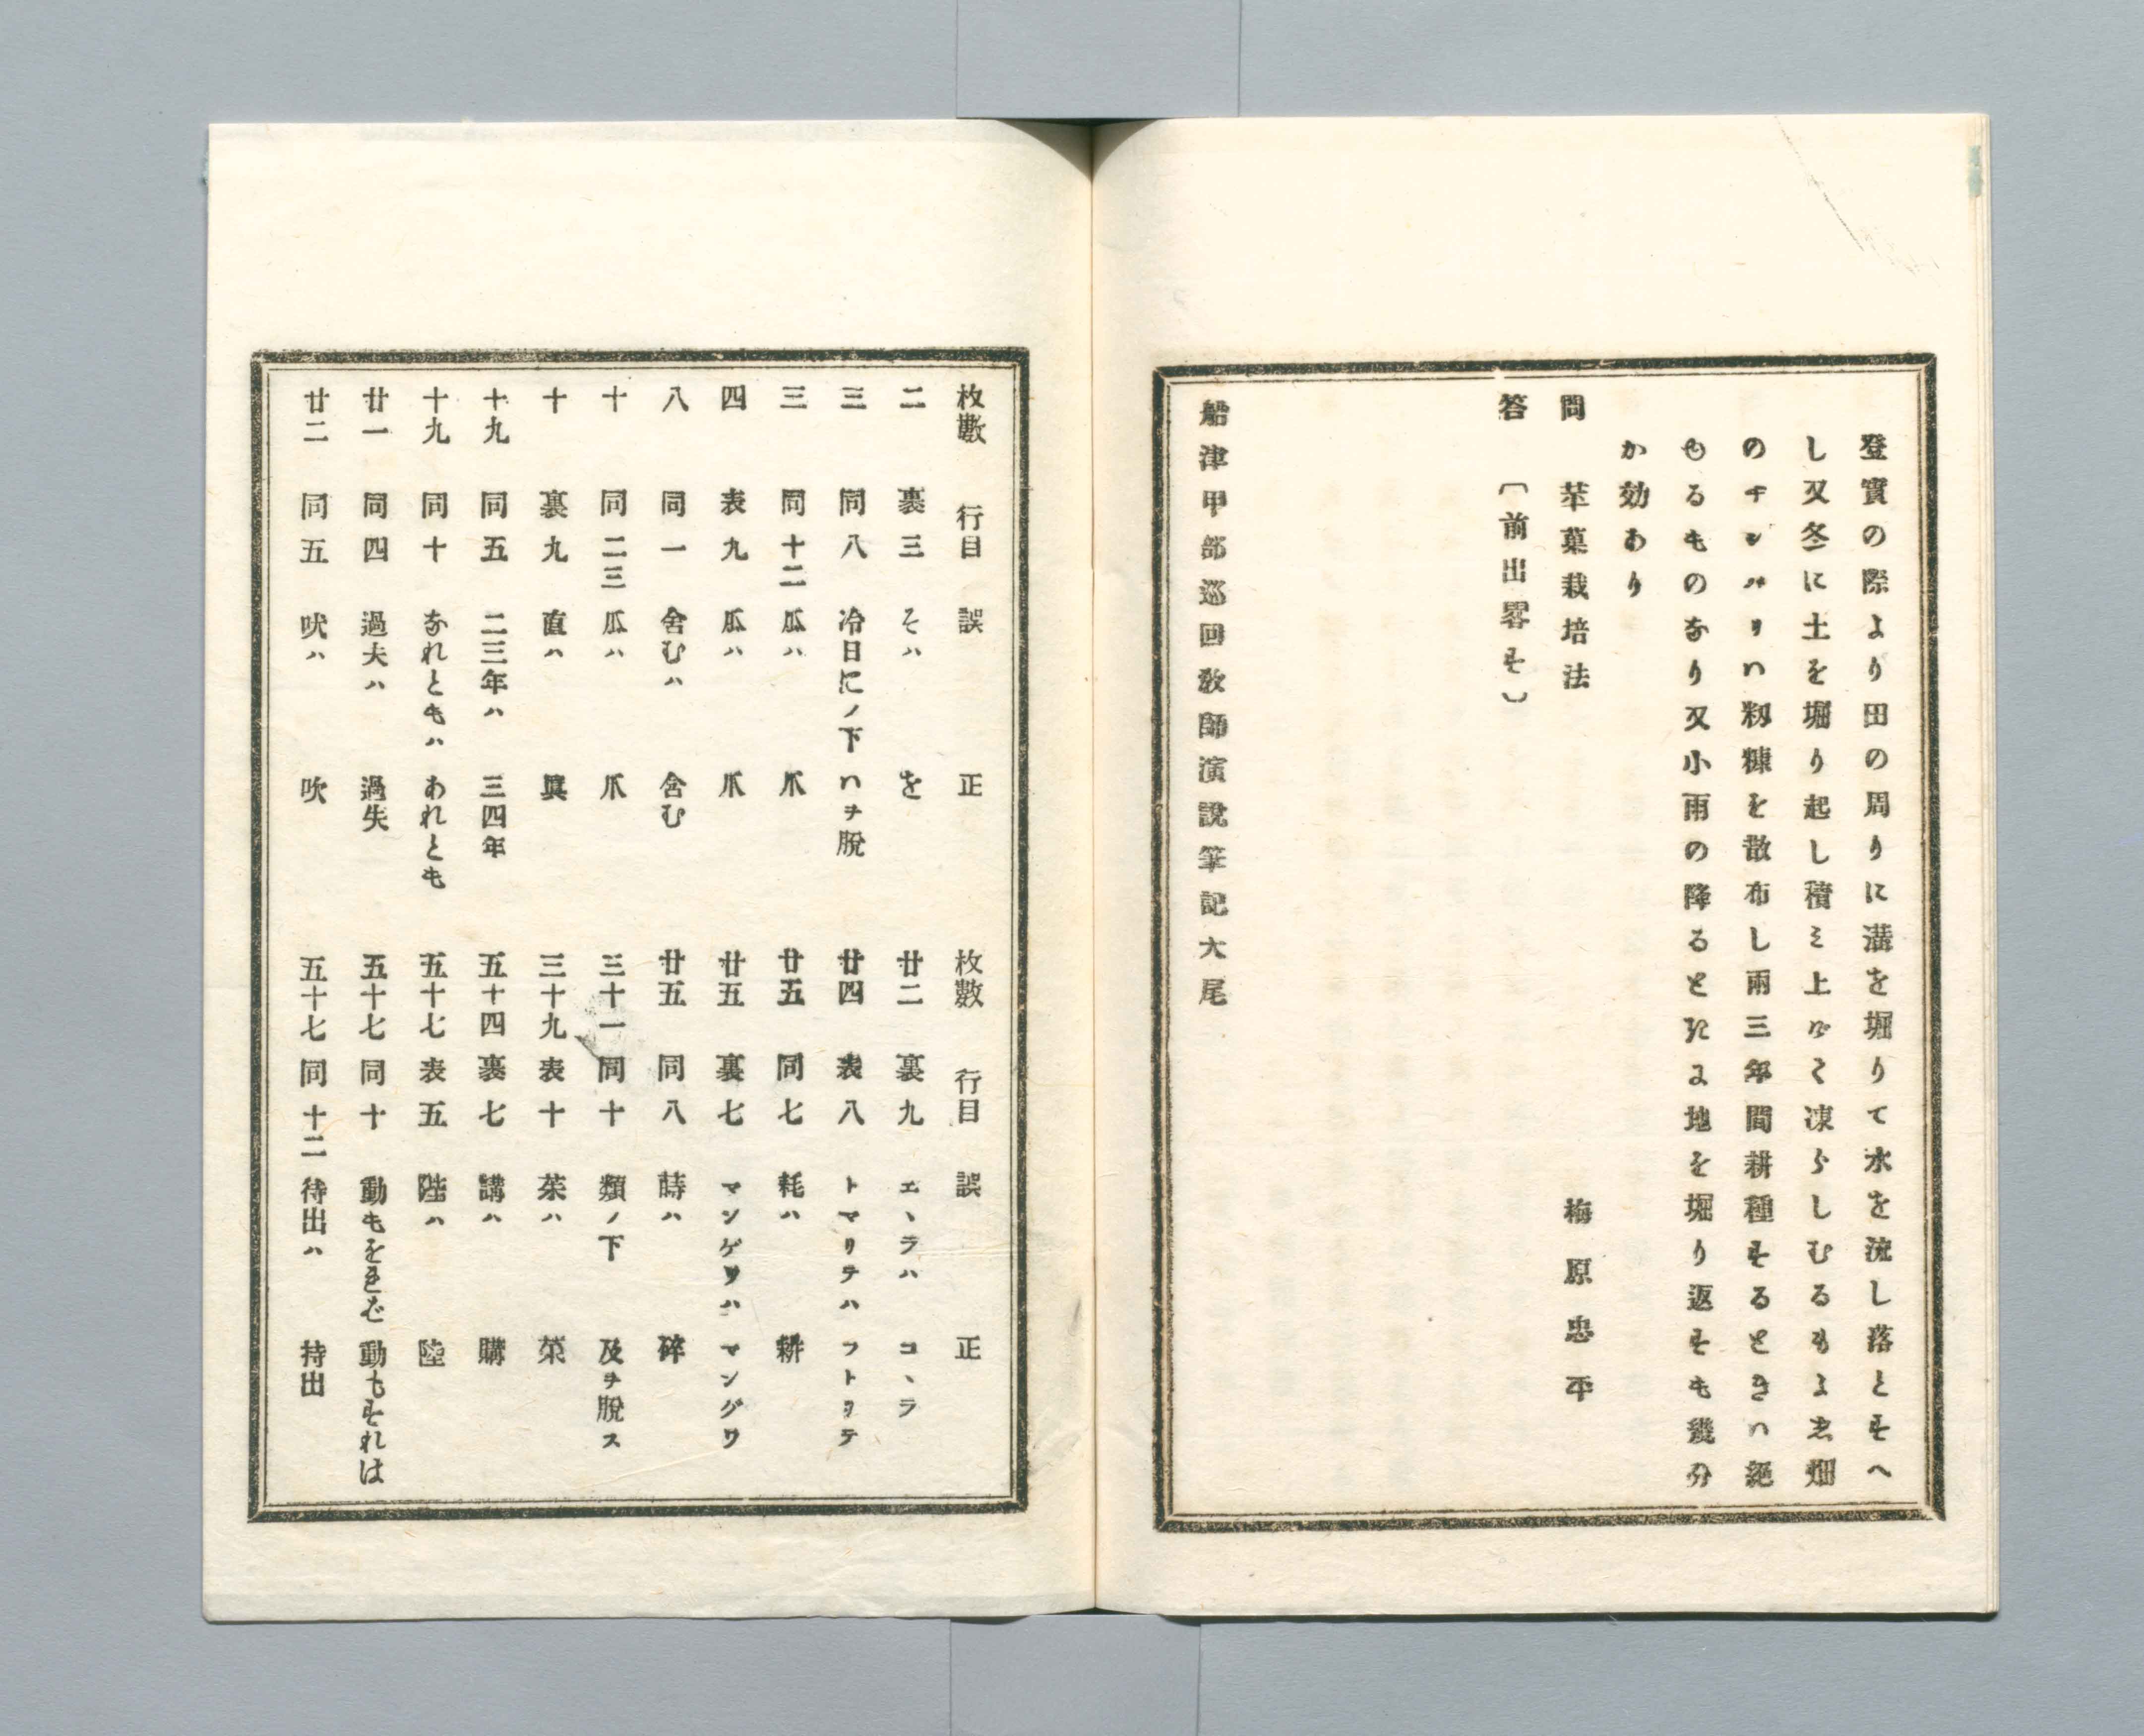 登實の際より田の周りに溝を堀りて水を流し落とそへ
し又冬に土を堀り起し積ミ上げく凍らしむるもよゑ畑
のチシバリハ籾糠を散布し雨三年間耕種そるときハ絶
もるものなり又小雨の降るときによ地を堀り返そも幾分
か効あり
問 苹菓栽培法 梅原忠平
答 〔前出畧そ〕
船津甲部巡回教師演説筆記大尾
枚數 行目 誤 正
二 裏三 そハ を
三 同八 冷日にノ下 ハヲ脱
三 同十二 瓜ハ 爪
四 表九 瓜ハ 爪
八 同一 舍むハ 含む
十 同二三 瓜ハ 爪
十 裏九 直ハ 眞
十九 同五 二三年ハ 三四年
十九 同十 なれともハ あれとも
廿一 同四 過夫ハ 過失
廿二 同五 吠ハ 吹
枚數 行目 誤 正
廿二 裏九 エヽラハ コヽラ
廿四 表八 トマリテハ フトリテ
廿五 同七 耗ハ 耕
廿五 裏七 マンゲワハ マングワ
廿五 同八 蒔ハ 碎
三十一 同十 類ノ下 及ヲ脱ス
三十九 表十 茱ハ 菜
五十四 裏七 講ハ 購
五十七 表五 陸ハ 陸
五十七 同十 動もをきバ 動もそれは
五十七 同十二 待出ハ 持出